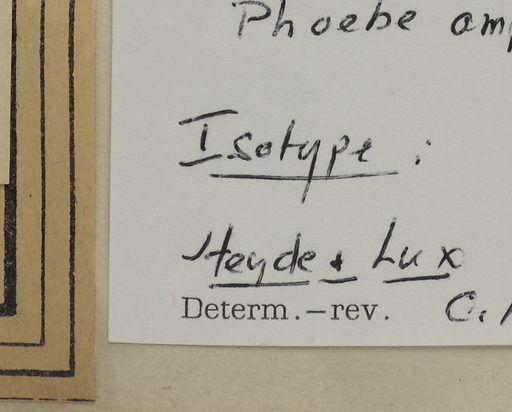 Phoebe
Isotype :
Heyde + Lux
Determ.—rev. C.